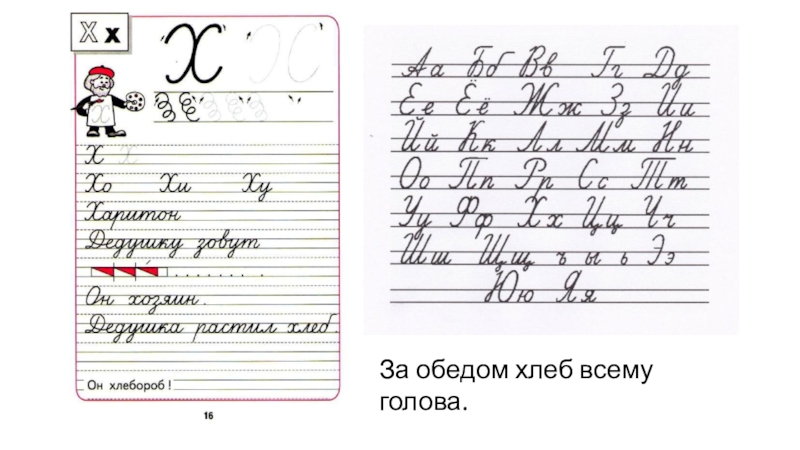 Х х
Х Х
Х
Х Х
Хо Хи Ху
Харитон
Дедушку зовут
. . . . . . . .
Он хозяин.
Дедушка растил хлеб.
Он хлебороб !
16
Аа Бб Вв Гг Дд
Ее Ёё Жж Зз Ии
Йй Кк Лл Мм Нн
Оо Пп Рр Сс Тт
Уу Фф Хх Цц Чч
Шш Щщ ъ ы ь Ээ
Юю Яя
За обедом хлеб всему
голова.